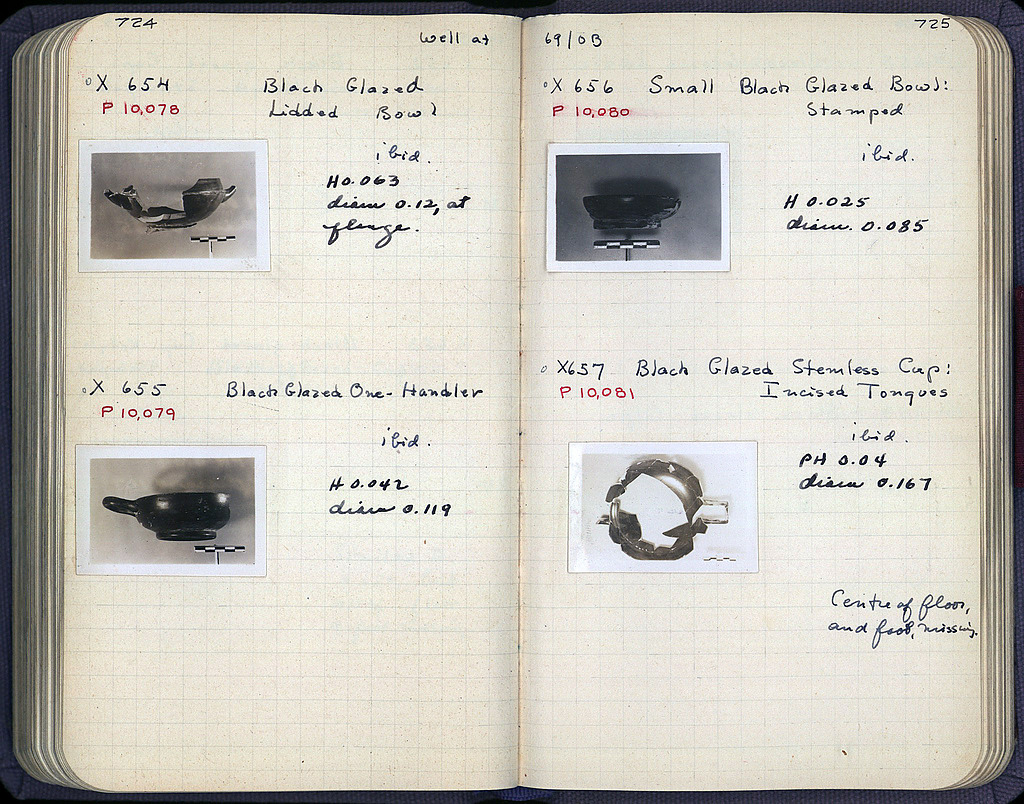 724
Well at
X 654 Black Glazed
P 10,078 Lidded Bowl
ibid.
H 0.063
diam 0.12, at
flange.
X 655 Black Glazed One-Handler
P 10,079
ibid.
H 0.042
diam 0.119
725
69/OB
X 656 Small Black Glazed Bowl:
P 10,080 Stamped
ibid.
H 0.025
diam. 0.085
X657 Black Glazed Stemless Cup:
P 10,081 Incised Tongues
ibid.
PH 0.04
diam 0.167
Centre of floor,
and foot, missing.